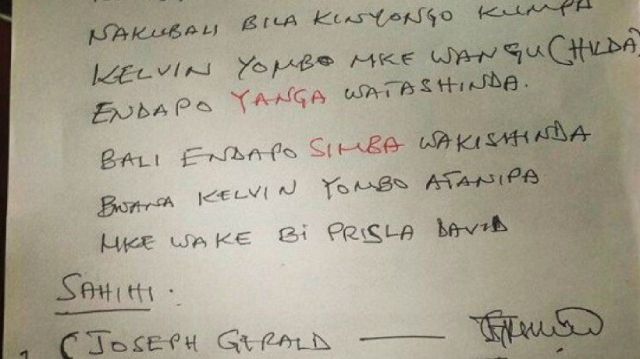 NAKUBALI BILA KINYONGO KUMPA
KELVIN YOMBO MKE WANGU (HILDA)
ENDAPO YANGA WATASHINDA.
BALI ENDAPO SIMBA WAKISHINDA
BWANA KELVIN YOMBO ATANIPA
MKE WAKE BI PRISLA DAVID
SAHIHI.
(JOSEPH GERALD